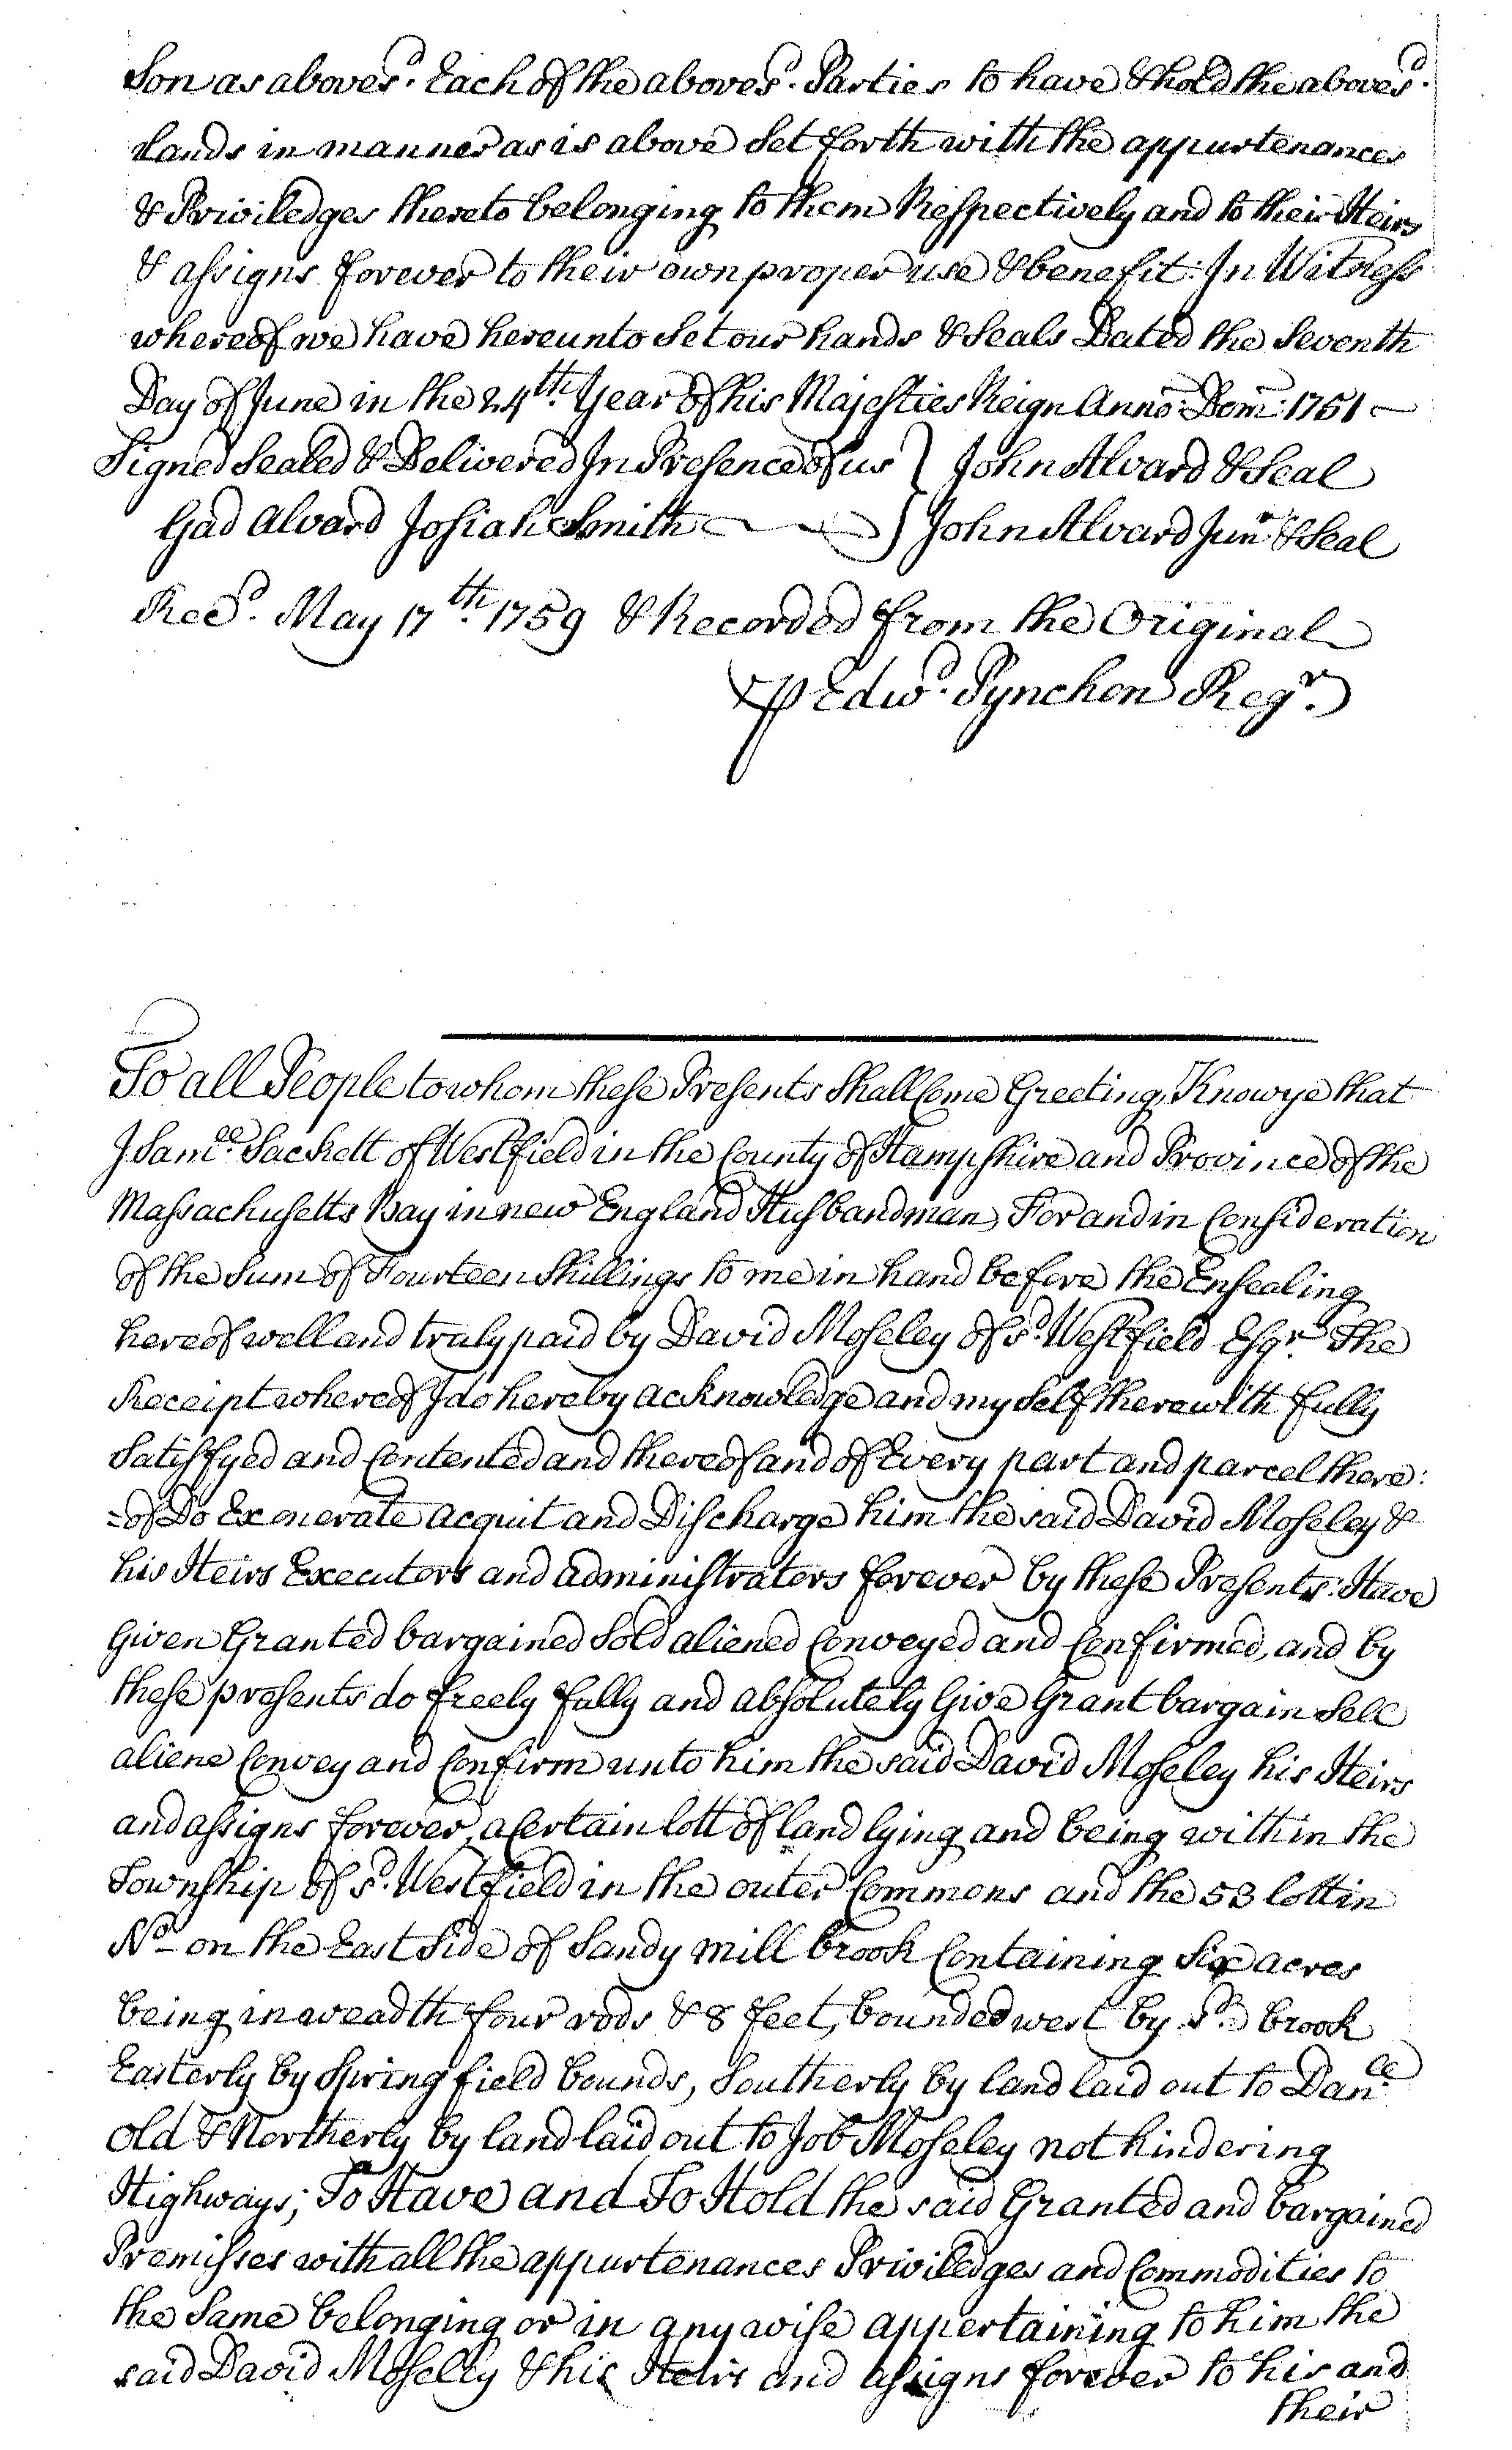 Son as aboves.d Each of the aboves.d Parties to have & hold the aboves.d
Lands in manner as is above Set forth with the appurtenances
& Priviledges thereto belonging to them Respectively and to their Heirs
& assigns forever to their own proper use & benefit: In Witness
whereof we have hereunto Set our hands & Seals Dated the Seventh
Day of June in the 24th. Year of his Majesties Reign Anno: Dom: 1751
Signed Sealed & Delivered In Presence of us } John Alvard & Seal
Gad Alvard Josiah Smith } John Alvard Junr. & Seal
Recd. May 17th. 1759 & Recorded from the Original
⅌ Edwd. Pynchon Regr.
To all People to whom these Presents Shall Come Greeting, Know ye that
I Samll. Sackett of Westfield in the County of Hampshire and Province of the
Massachusetts Bay in new England Husbandman, For and in Consideration
of the Sum of Fourteen Shillings to me in hand before the Ensealing
hereof well and truly paid by David Moseley of sd. Westfield Esqr. The
Receipt whereof I do hereby acknowledge and my Self therewith fully
Satisfyed and Contented and thereof and of Every part and parcel there:
-of Do Exonerate acquit and Discharge him the said David Moseley &
his Heirs Executors and administrators forever by these Presents: Have
Given Granted bargained Sold aliened Conveyed and Confirmed, and by
these presents do freely fully and absolutely Give Grant bargain Sell
aliene Convey and Confirm unto him the said David Moseley his Heirs
and assigns forever, a Certain lott of land lying and being within the
Township of sd. Westfield in the outer Commons and the 53 lott in
No- on the East Side of Sandy mill brook Containing Six acres
being in weadth four rods & 8 feet, bounded west by sd. brook
Easterly by Springfield bounds, Southerly by land laid out to Danll.
old & Northerly by land laid out to Job Moseley not hindering
Highways; To Have and To Hold the said Granted and bargained
Premisses with all the appurtenances Priviledges and Commodities to
the Same belonging or in any wise appertaining to him the
said David Moselly & his Heirs and assigns forever to his and
their